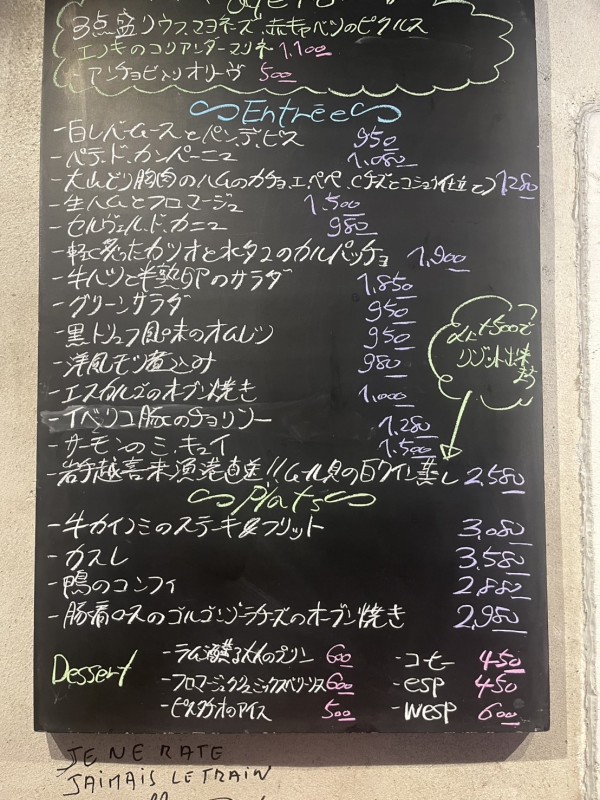 3点盛り ウフマヨネーズ、赤キャベツのピクルス
エノキのコリアンダーマリネ 1,100
- アンチョビ入りオリーヴ 500
Entrée
- 白レバームースとパンデピス 950
- パテ.ド.カンパーニュ 1,080
- 大山どり胸肉のハムのカチョ.エ.ペペ.(チーズとコショウ仕立て) 1,280
- 生ハムとフロマージュ 1.500
- セルヴェル.ド.カニュ 980
- 軽く炙ったカツオと水タコのカルパッチョ 1,900
- 牛ハツと半熟卵のサラダ 1,850
- グリーンサラダ 950
- 黒トリュフ風味のオムレツ 950
- 洋風モツ煮込み 980
- エスカルゴのオーブン焼き 1,000
- イベリコ豚のチョリソー 1,280
- サーモンのミ.キュイ 1,500
+500で
リゾット出来
ます
- 岩手越喜来漁港直送!!ムール貝の白ワイン蒸し 2,580
Plats
- 牛カイノミのステーキ&フリット 3,080
- カスレ 3,580
- 鴨のコンフィ 2,880
- 豚肩ロースのゴルゴンゾーラチーズのオーブン焼き 2,980
Dessert
- ラム酒薫る大人のプリン 600
- コーヒー 450
- フロマージュクリュミックスベリーソース 600
- esp 450
- ピスタチオのアイス 500
- wesp 600
JE NE RATE
JAIMAIS LE TRAIN